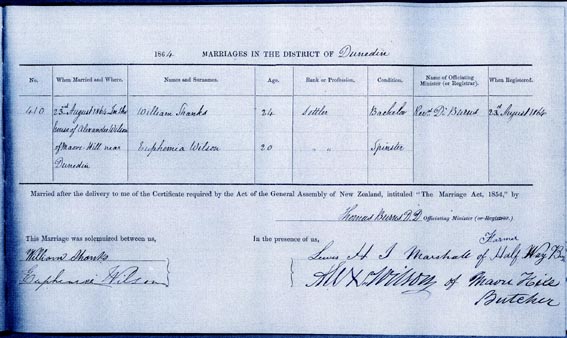 1864. MARRIAGES IN THE DISTRICT OF Dunedin
No. When Married and Where. Names and Surnames. Age. Rank or Profession. Condition. Name of Officiating Minister (or Registrar). When Registered.
410 23rd August 1864 In the William Shanks 24 Settler Bachelor Revd. Dr. Burns 23rd August 1864
house of Alexander Wilson
of Maori Hill near Euphemia Wilson 20 " " Spinster
Dunedin
Married after the delivery to me of the Certificate required by the Act of the General Assembly of New Zealand, intituled "The Marriage Act, 1854," by
Thomas Burns D.D. Officiating Minister (or Registrar.)
This Marriage was solemnized between us,
William Shanks
Euphemia Wilson
In the presence of us,
Farmer
Lewis H J Marshall of Half Way
Wilson of Maori Hill
Butcher